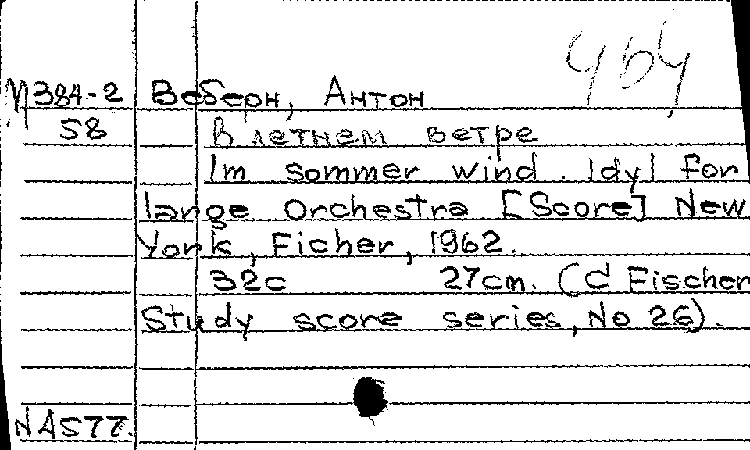 464
М384-2 Веберн, Антон
58 В летнем ветре
Im sommer wind. Idyl for
large Orchestra [Score] New
York, Ficher, 1962.
32c 27cm. (C Fischer
Study score series, No 26).
NA577.